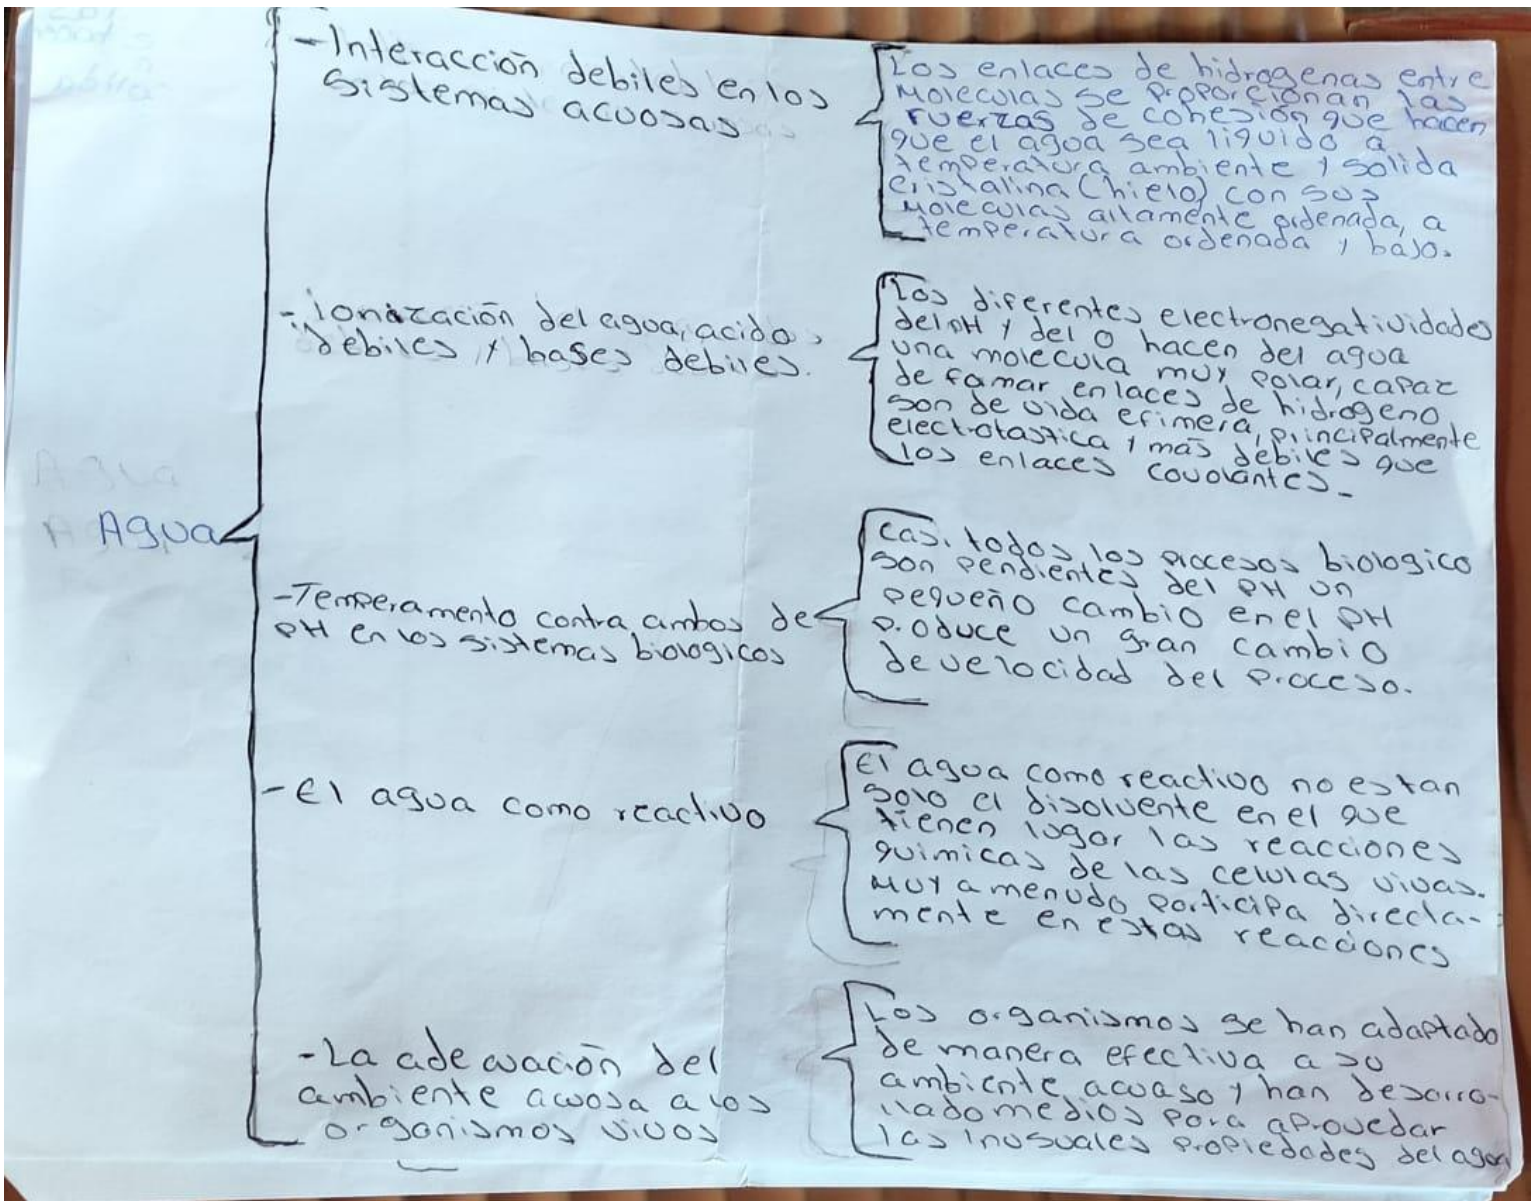 Agua
-Interacción debiles en los
sistemas acuosas
Los enlaces de hidrogenas entre
moleculas se proporcionan las
fuerzas de cohesión que hacen
que el agua sea liquido a
temperatura ambiente y solida
cristalina (hielo) con sus
moleculas altamente ordenada, a
temperatura ordenada y bajo.
-ionización del agua, acidos
debiles y bases debiles.
Los diferentes electronegatividades
del pH y del O hacen del agua
una molecula muy polar, capaz
de famar enlaces de hidrogeno
son de vida efimera, principalmente
electrotastica y más debiles que
los enlaces covolantes.
-Temperamento contra ambos de
PH en los sistemas biologicos
Casi todos los procesos biologico
son pendientes del PH un
pequeño cambio en el PH
produce un gran cambio
de velocidad del proceso.
-El agua como reactivo
El agua como reactivo no es tan
solo el disolvente en el que
tienen lugar las reacciones
quimicas de las celulas vivas.
Muy a menudo participa directa-
mente en estas reacciones
-La adecuación del
ambiente acuosa a los
organismos vivos
Los organismos se han adaptado
de manera efectiva a so
ambiente acuaso y han desarro-
llado medios para aprovedar
las inusuales propiedades del agua